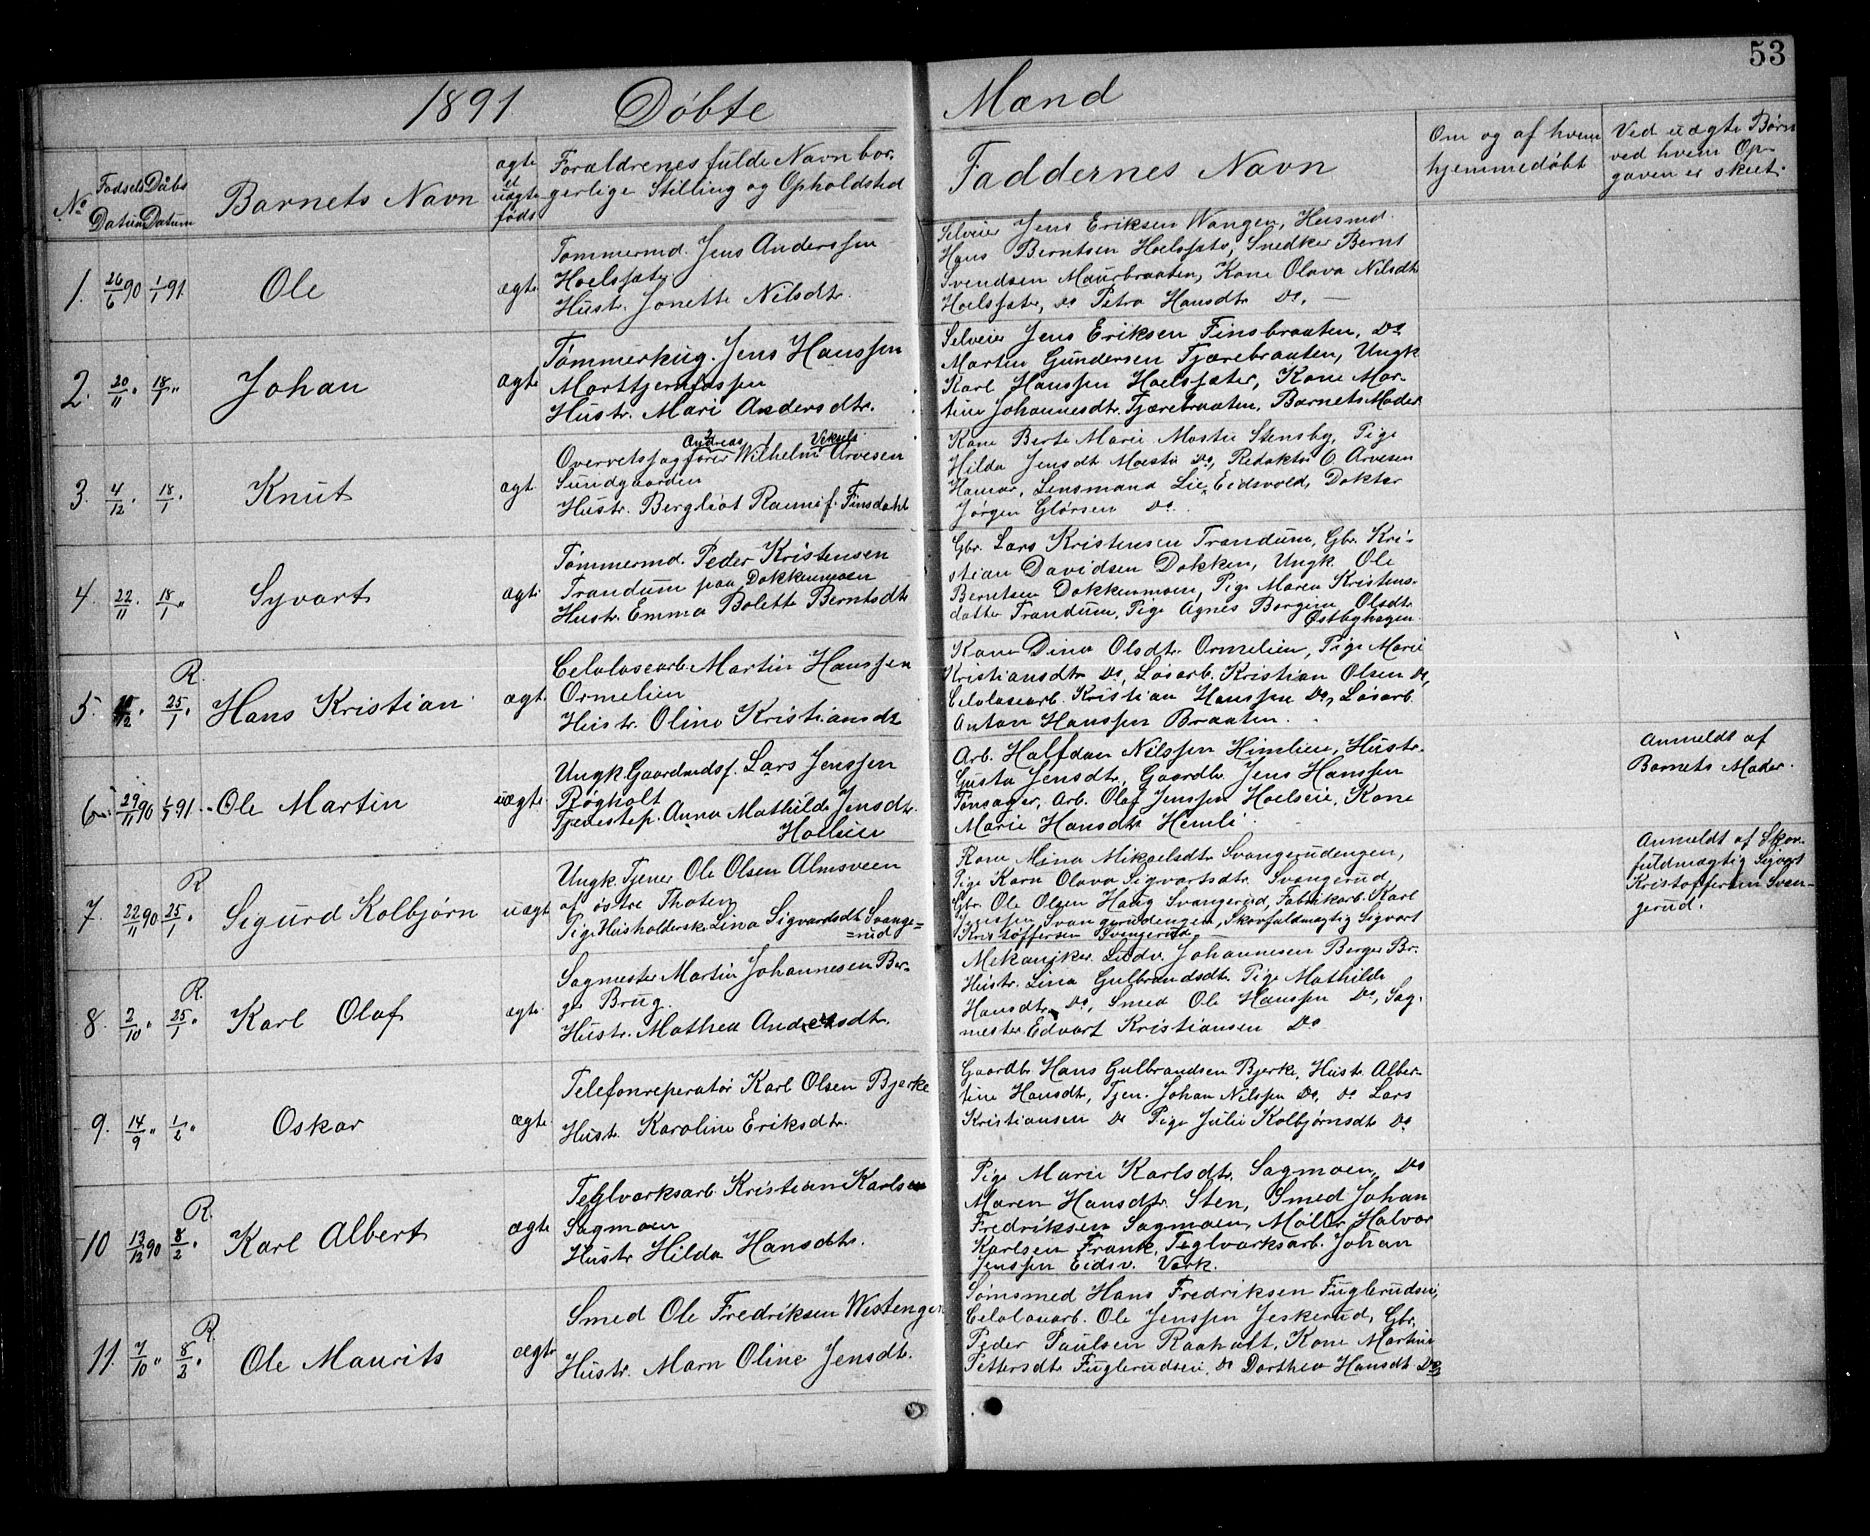 53
1891 Döbte Mænd
No
Fødsels Datum
Dåbs Datum
Barnets Navn
ægte el uægte føds
Forældrenes fulde Navn bor-
gerlige Stilling og Opholdsted
Faddernes Navn
Om og af hvem
hjemmedøbt
Ved uægte Børn
ved hvem Op-
gaven er skeet.
1. 26/6 90 1/1 91. Ole ægte
Tømmermd. Jens Anderssen
Hoelsæter
Hustr. Jonette Nilsdtr.
Selveier Jens Eriksen Wangen, Husmd.
Hans Berntsen Hoelsæter, Snedker Bernt
Svendsen Maurbraaten, Kone Olava Nilsdtr
Hoelsæter, Do Petra Hansdtr Do. —
2. 20/11 " 18/1 " Johan ægte
Tømmerhug. Jens Hanssen
Morttjern
Hustr. Mari Andersdtr.
Selveier Jens Eriksen Finsbraaten, Do
Martin Gundersen Tjærebraaten, Ungk
Karl Hanssen Hoelsæter, Kone Mar-
tine Johannesdtr. Tjærebraaten, Barnets Moder
3. 4/12 " 18/1 " Knut ægt.
Overretssagfører Andreas Wilhelm Arvesen
Sundgaarden
Hustr. Bergliot Raumi f. Finsdahl
Kone Berte Marie Mostu Stensby, Pige
Hilda Jensdt Moestu Do, Redaktør O Arvesen
Hamar, Lensmand Lie, Eidsvold, Doktor
Jørgen Glørsen Do.
4. 22/11 " 18/1 " Syvart ægte
Tømmermd. Peder Kristensen
Trandum paa Dokkenmoen
Hustr. Emma Bolette Berntsdtr
Gbr. Lars Kristensen Trandum, Gbr. Kri-
stian Davidsen Dokken, Ungk. Ole
Berntsen Dokkenmoen, Pige Maren Kristens-
datter Trandum, Pige Agnes Borgine Olsdtr
Østbyhagen.
5. 15/12 " R. 25/1 " Hans Kristian ægt.
Celolosearb. Martin Hanssen
Ormelien
Hustr. Oline Kristiansdtr
Kone Dina Olsdtr. Ormelien, Pige Marie
Kristiansdtr Do, Løsarb. Kristian Olsen Do,
Celolosearb. Kristian Hanssen Do, Løsarb.
Anton Hanssen Braaten.
6. 29/11 90 1/1 91. Ole Martin uægte
Ungk. Gaardmdsf. Lars Jenssen
Røgholt
Tjenestep. Anna Mathilde Jensdtr.
Holien
Arb. Halfdan Nilssen Himlien, Hustr.
Gusta Jensdtr., Gaardb. Jens Hanssen
Tønsager, Arb. Olaf Jenssen Hoelseie, Kone
Marie Hansdtr Hemli
Anmeldt af
Barnets Moder.
7. 22/11 90 R 25/1 " Sigurd Kolbjørn uægt
Ungk. Tjener Ole Olsen Almsveen
af østre Thoten
Pige Husholderske Lina Sigvardsdt Svange-
rud
Kone Mina Mikaelsdtr Svangerudengen,
Pige Karn Olava Sigvartsdtr. Svangerud,
Gbr. Ole Olsen Haug Svangerud, Fabrikarb. Karl
Jenssen Svangerudengen, Skovfuldmægtig Sigvart
Kristoffersen Svangerud.
Anmeldt af Skov-
fuldmægtig Sigvart
Kristoffersen Svan-
gerud.
8. 2/10 " R. 25/1 " Karl Olaf ægte.
Sagmester Martin Johannesen Ber-
ge Brug.
Hustr. Mathea Andersdtr.
Mekaniker Ludv. Johannesen Berger Br.
Hustr. Lina Gulbrandsdtr. Pige Mathilde
Hansdtr Do, Smed Ole Hanssen Do, Sag-
mester Edvart Kristiansen Do
9. 14/9 " 1/2 " Oskar ægte
Telefonreperatør Karl Olsen Bjerke
Hustr. Karoline Eriksdtr.
Gaardbr Hans Gulbrandsen Bjerke, Hustr. Alber-
tine Hansdtr, Tjen. Johan Nilssen Do, Do Lars
Kristiansen Do Pige Julie Kolbjørnsdtr Do
10 13/12 90 R. 8/2 " Karl Albert ægte
Teglværksarb. Kristian Karlsen
Sagmoen
Hustr Hilda Hansdtr.
Pige Marie Karlsdtr. Sagmoen, Do
Maren Hansdtr. Sten, Smed Johan
Fredriksen Sagmoen, Møller Halvor
Karlsen Frank, Teglværksarb. Johan
Jenssen Eidsv. Værk.
11. 7/10 " R. 8/2 " Ole Maurits ægte
Smed Ole Fredriksen Westengen
Hustr. Marn Oline Jensdtr.
Sømsmed Hans Fredriksen Fuglerudsei,
Celolosearb. Ole Jenssen Jeskerud, Gbr.
Peder Paulsen Raaholt, Kone Martine
Pettersdtr Fuglerudseie, Do Dorthea Hansdt Do